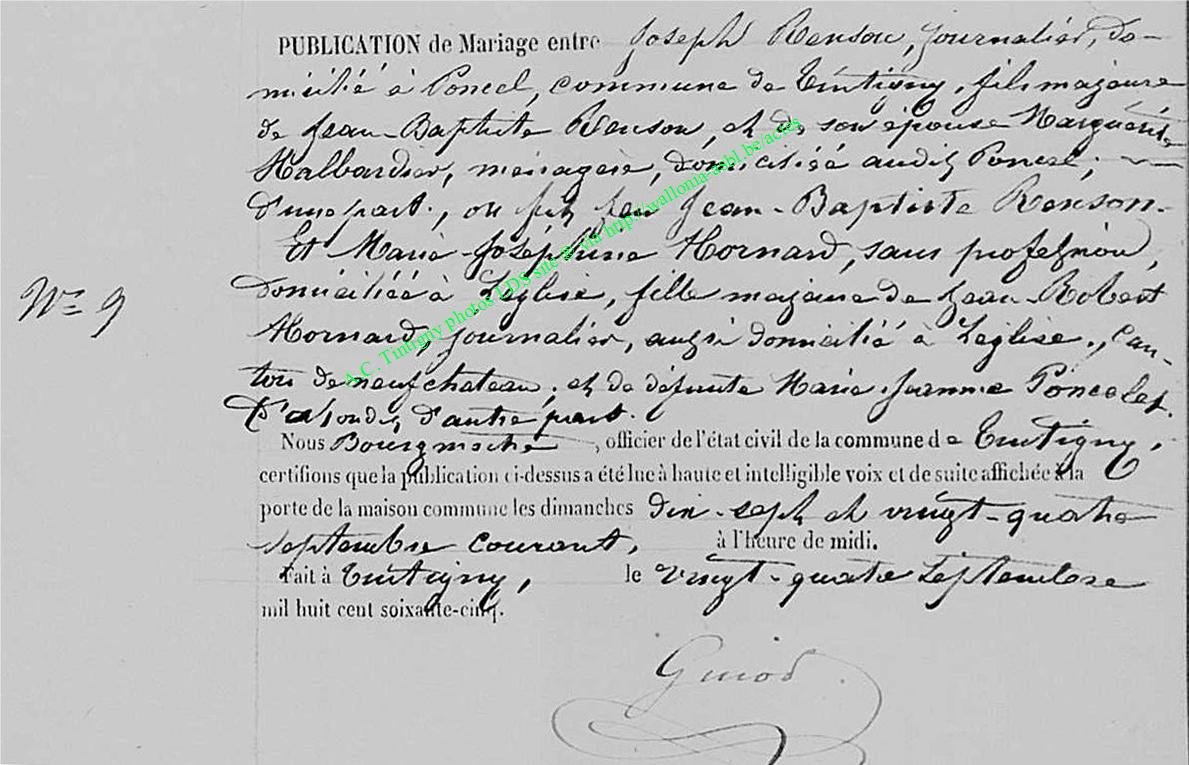 PUBLICATION de Mariage entre Joseph Renson, journalier, do-
micilié à Poncel, commune de Tintigny, fils majeure
de Jean-Baptiste Renson, et de son épouse Marguerite
Halbardier, ménagère, domiciliée audit Poncel,
d'une part, ou feu Jean-Baptiste Renson.
Et Marie-Joséphine Hornard, sans profession,
domiciliée à Léglise, fille majeure de Jean-Robert
N° 9
Hornard, journalier, aussi domicilié à Léglise, can-
ton de neufchateau, et de défunte Marie-Jeanne Poncelet.
d'autre part.
Nous Bourgmestre, officier de l'état civil de la commune de Tintigny,
certifions que la publication ci-dessus a été lue à haute et intelligible voix et de suite affichée à la
porte de la maison commune les dimanches dix-sept et vingt-quatre
septembre courant, à l'heure de midi.
Fait à Tintigny, le vingt-quatre Septembre
mil huit cent soixante-cinq.
A.C. Tintigny photos LDS site @ via http://wallonia-asbl.be/actes